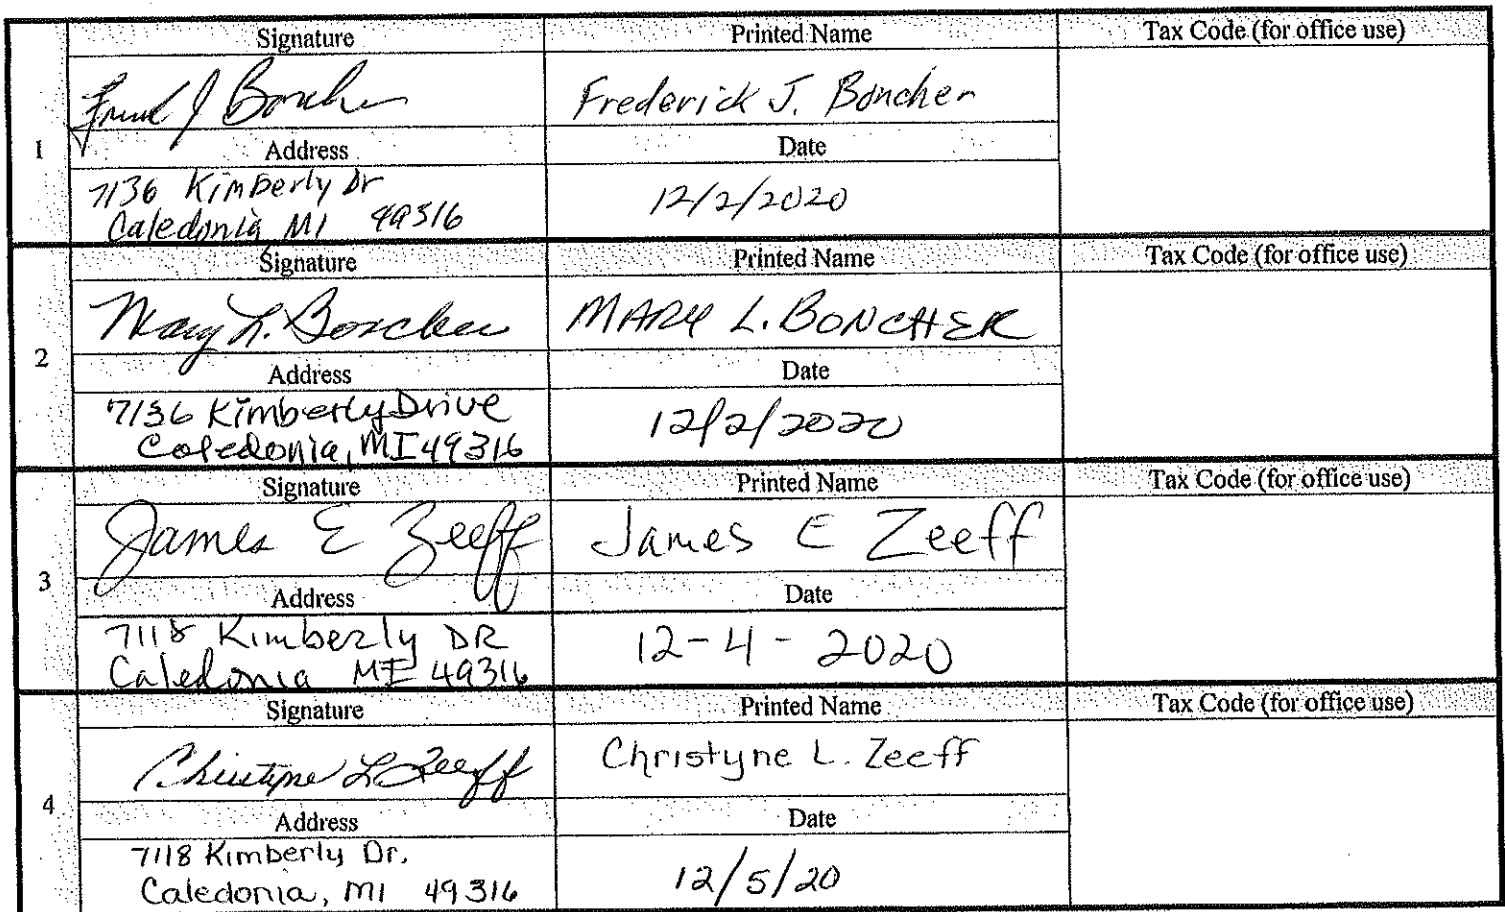 Signature Printed Name Tax Code (for office use)
Fred J Boncher Frederick J. Boncher
1
Address Date
7136 Kimberly Dr
Caledonia MI 49316
12/2/2020
Signature Printed Name Tax Code (for office use)
Mary L. Boncher MARY L. BONCHER
2
Address Date
7136 Kimberly Drive
Caledonia, MI 49316
12/2/2020
Signature Printed Name Tax Code (for office use)
James E Zeeff James E Zeeff
3
Address Date
7118 Kimberly DR
Caledonia MI 49316
12-4-2020
Signature Printed Name Tax Code (for office use)
Christyne L Zeeff Christyne L. Zeeff
4
Address Date
7118 Kimberly Dr.
Caledonia, MI 49316
12/5/20